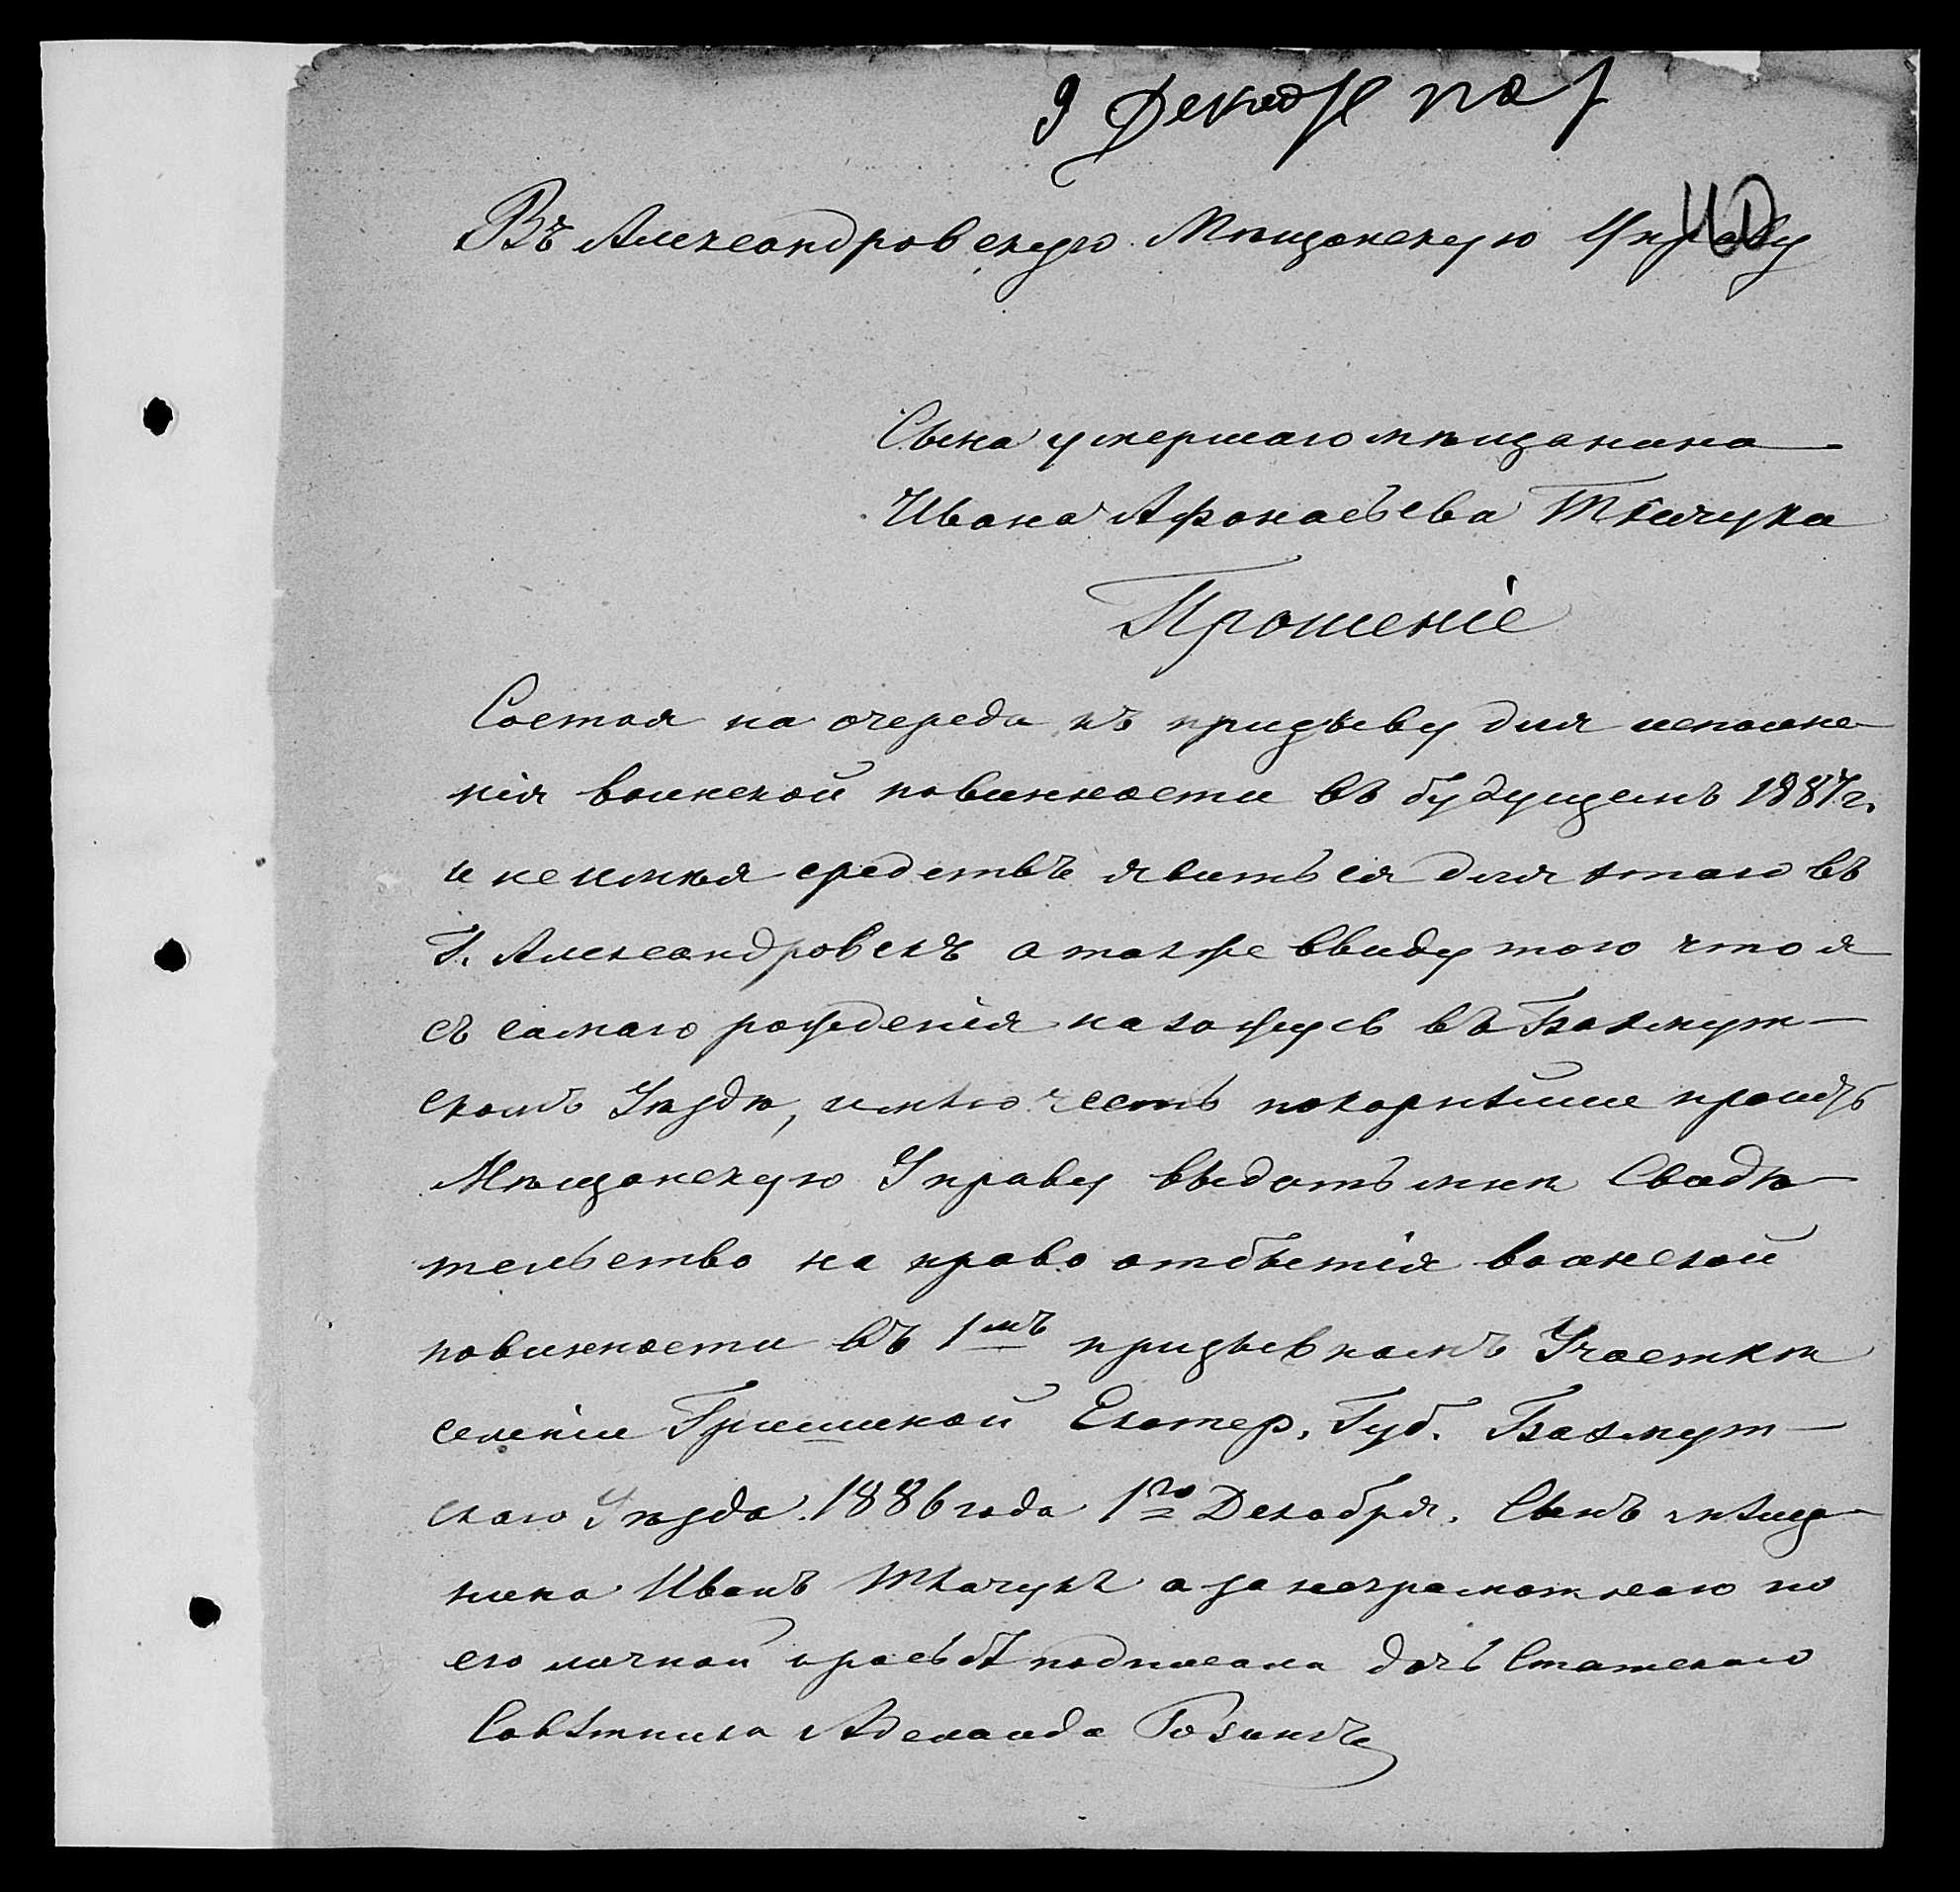 9 Декабр
Въ Александровскую Мѣщанскую Управу
Сына умершаго мѣщанина
Ивана Афонасьева Ткачука
Прошеніе
Состоя на очереди къ призыву для исполне-
нія воинской повинности въ будущемъ 1887 г.
и не имѣя средствъ явиться для этого въ
Г. Александровскъ а также ввиду того что я
съ самаго рожденія нахожусь въ Бахмут-
скомъ Уѣздѣ, имѣю честь покорнѣйше просить
Мѣщанскую Управу выдать мнѣ Свидѣ-
тельство на право отбытія воинской
повинности въ 1мъ призывномъ Участкѣ
селеніи Гришиной Екатер. Губ. Бахмут-
скаго Уѣзда. 1886 года 1го Декабря. Сынъ мѣща-
нина Иванъ Ткачукъ а за неграмотнаго по
его личной просьбѣ подписала дочь Статскаго
Совѣтника Аделаида